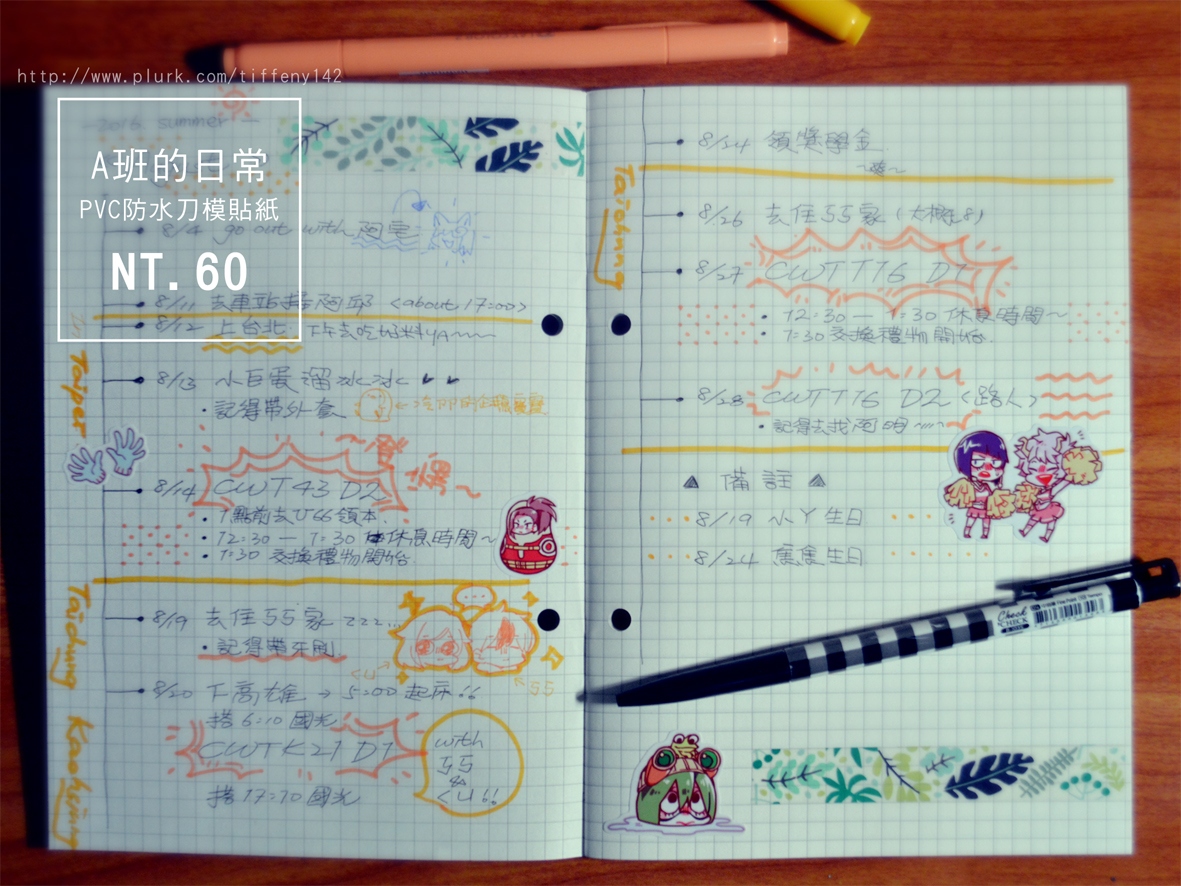 http://www.plurk.com/tiffeny142
A班的日常
PVC防水刀模貼紙
NT.60
2016. summer
8/4 go out with 阿宅
8/11 去車站接阿邱 <about 17:00>
8/12 上台北 下午去吃好料YA~~~
Taipei
8/13 小巨蛋溜冰冰
・記得帶外套
8/14 CWT43 D2
・1點前去U66領本.
・12:30 — 1:30 休息時間~
・1:30 交換禮物開始.
Taichung
8/19 去住55家 zzz...
・記得帶牙刷.
55
8/20 下高雄 → 5:00 起床!!
搭 6:10 國光
Kaohsiung
CWTK21 D1
with
55
&
<U!!
搭17:10 國光
8/24 領獎學金.
Taichung
8/26 去住55家 (大概是8)
8/27 CWTT16 D1
・12:30 — 1:30 休息時間~
・1:30 交換禮物開始.
8/28 CWTT16 D2 <路人>
・記得去找阿明~
備註
8/19 小丫生日
8/24 生日
Check
CHECK